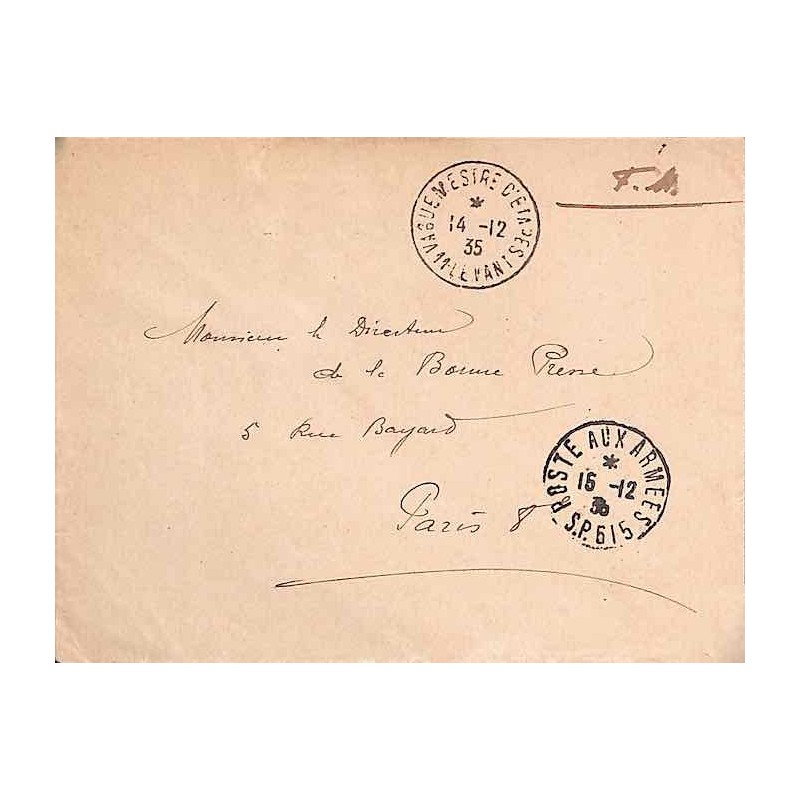 F.M.
VAGUEMESTRE D'ETAPES
*
14 -12
35
11 LEVANT
Monsieur le Directeur
de la Bonne Presse
5 Rue Bayard
Paris 8
POSTE AUX ARMEES
*
15 -12
35
S.P. 615